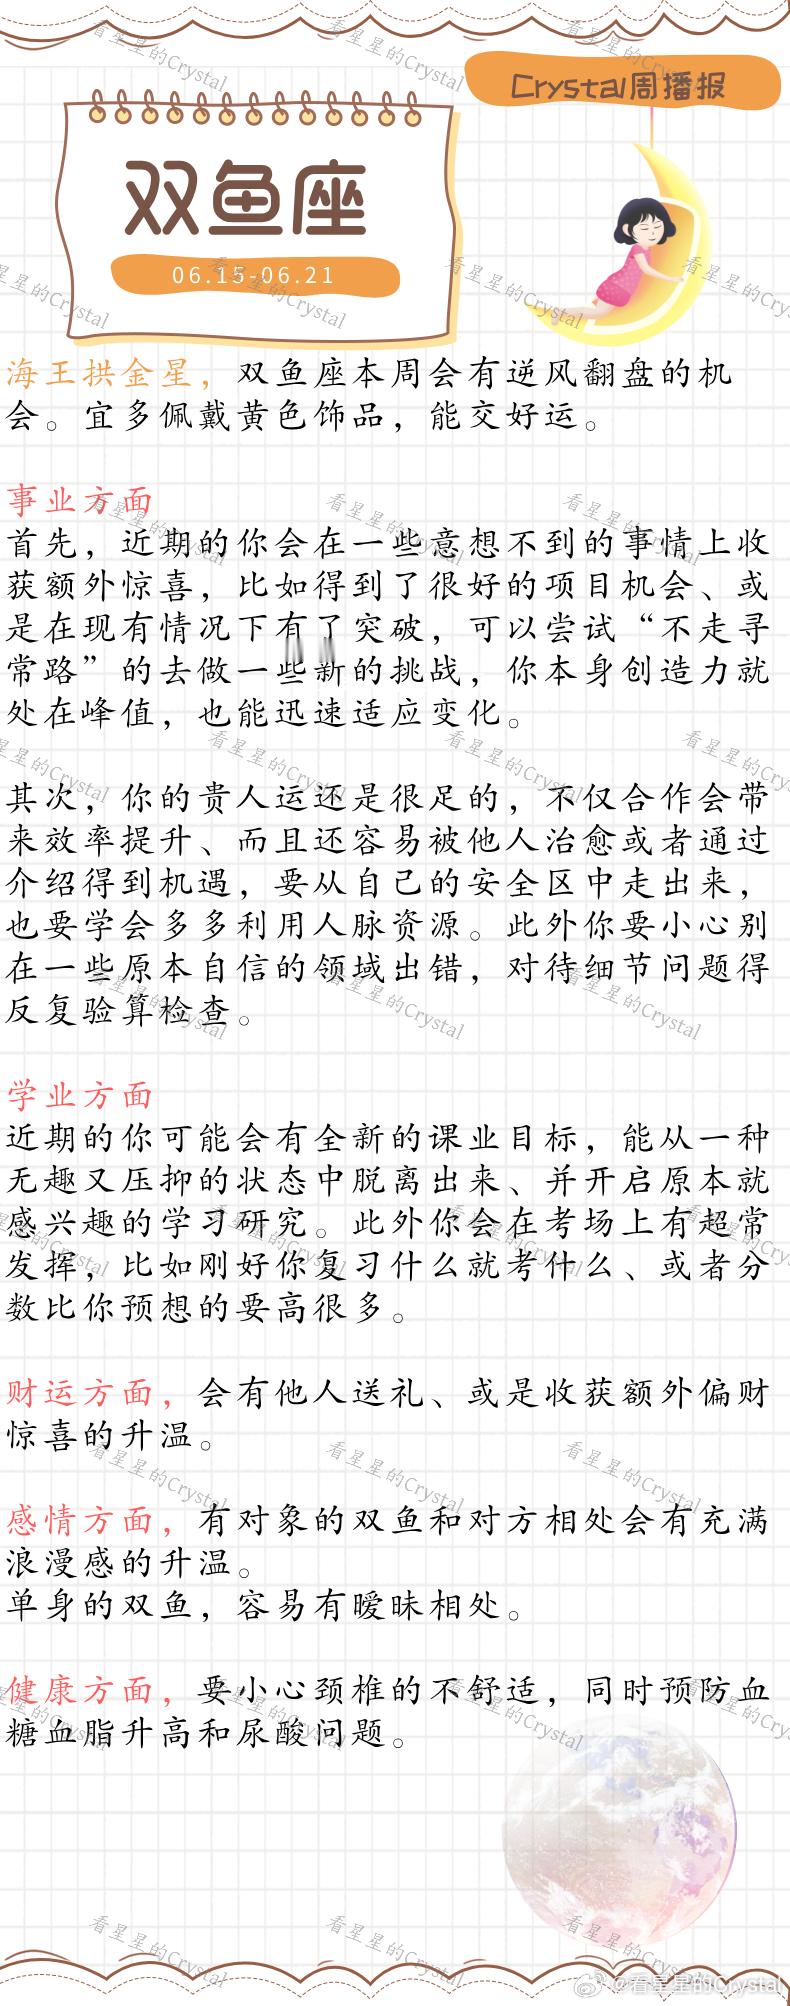 Crystal周播报
双鱼座
06.15-06.21
海王拱金星，双鱼座本周会有逆风翻盘的机
会。宜多佩戴黄色饰品，能交好运。
事业方面
首先，近期的你会在一些意想不到的事情上收
获额外惊喜，比如得到了很好的项目机会、或
是在现有情况下有了突破，可以尝试“不走寻
常路”的去做一些新的挑战，你本身创造力就
处在峰值，也能迅速适应变化。
其次，你的贵人运还是很足的，不仅合作会带
来效率提升、而且还容易被他人治愈或者通过
介绍得到机遇，要从自己的安全区中走出来，
也要学会多多利用人脉资源。此外你要小心别
在一些原本自信的领域出错，对待细节问题得
反复验算检查。
学业方面
近期的你可能会有全新的课业目标，能从一种
无趣又压抑的状态中脱离出来、并开启原本就
感兴趣的学习研究。此外你会在考场上有超常
发挥，比如刚好你复习什么就考什么、或者分
数比你预想的要高很多。
财运方面，会有他人送礼、或是收获额外偏财
惊喜的升温。
感情方面，有对象的双鱼和对方相处会有充满
浪漫感的升温。
单身的双鱼，容易有暧昧相处。
健康方面，要小心颈椎的不舒适，同时预防血
糖血脂升高和尿酸问题。
@看星星的Crystal